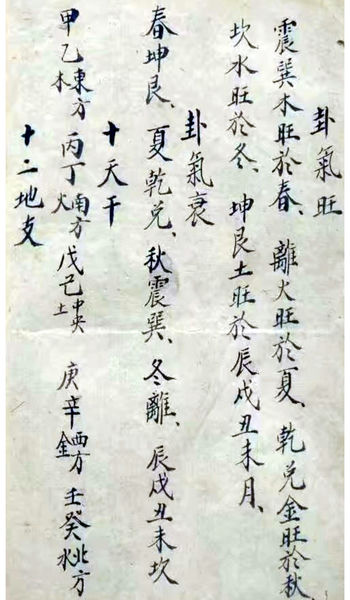 卦氣旺
震巽木旺於春、離火旺於夏、乾兑金旺於秋
坎水旺於冬、坤艮土旺於辰戌丑未月、
卦氣衰
春坤艮、夏乾兑、秋震巽、冬離、辰戌丑未坎
十天干
甲乙東方木 丙丁南方火 戊己中央土 庚辛西方金 壬癸北方水
十二地支